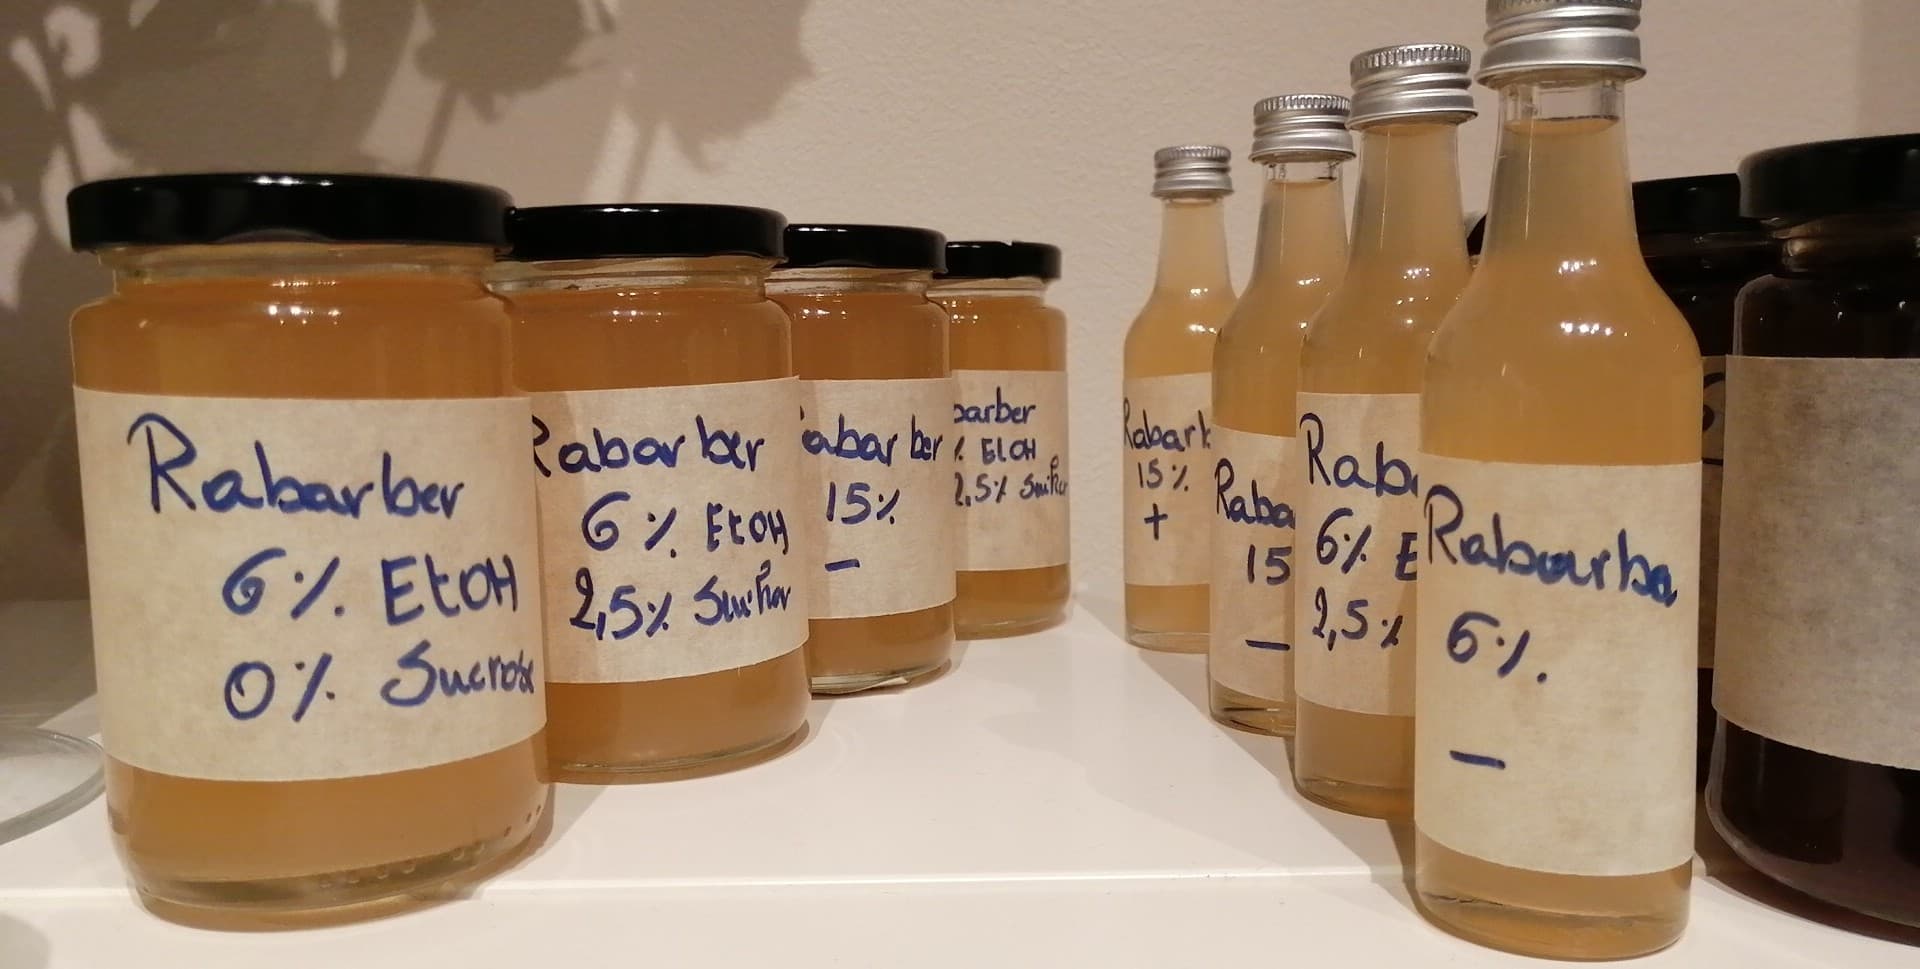 Rabarber
6% EtOH
0% Sucrose
Rabarber
6% EtOH
2,5%
abarber
15%
—
barber
% EtOH
2,5%
Rabarb
15%
+
Raba
15
—
Rab
6% E
2,5%
Rabarba
6%.
—